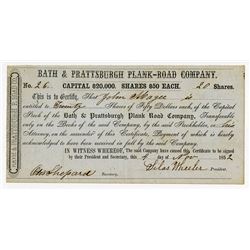 BATH & PRATTSBURGH PLANK-ROAD COMPANY.
No. 26 CAPITAL $20,000. SHARES $50 EACH. 20 Shares.
This is to Certify, That John Magee is
entitled to Twenty Shares of Fifty Dollars each, of the Capital
Stock of the Bath & Prattsburgh Plank Road Company, Transferable
only on the Books of the said Company, by the said Stockholder, or his
Attorney, on the surrender of this Certificate, Payment of which is hereby
acknowledged to have been received in full by the said Company.
IN WITNESS WHEREOF, The said Company have caused this Certificate to be signed
by their President and Secretary, this 4 day of Nov 1852
Shepard Secretary, Delas Wheeler President.